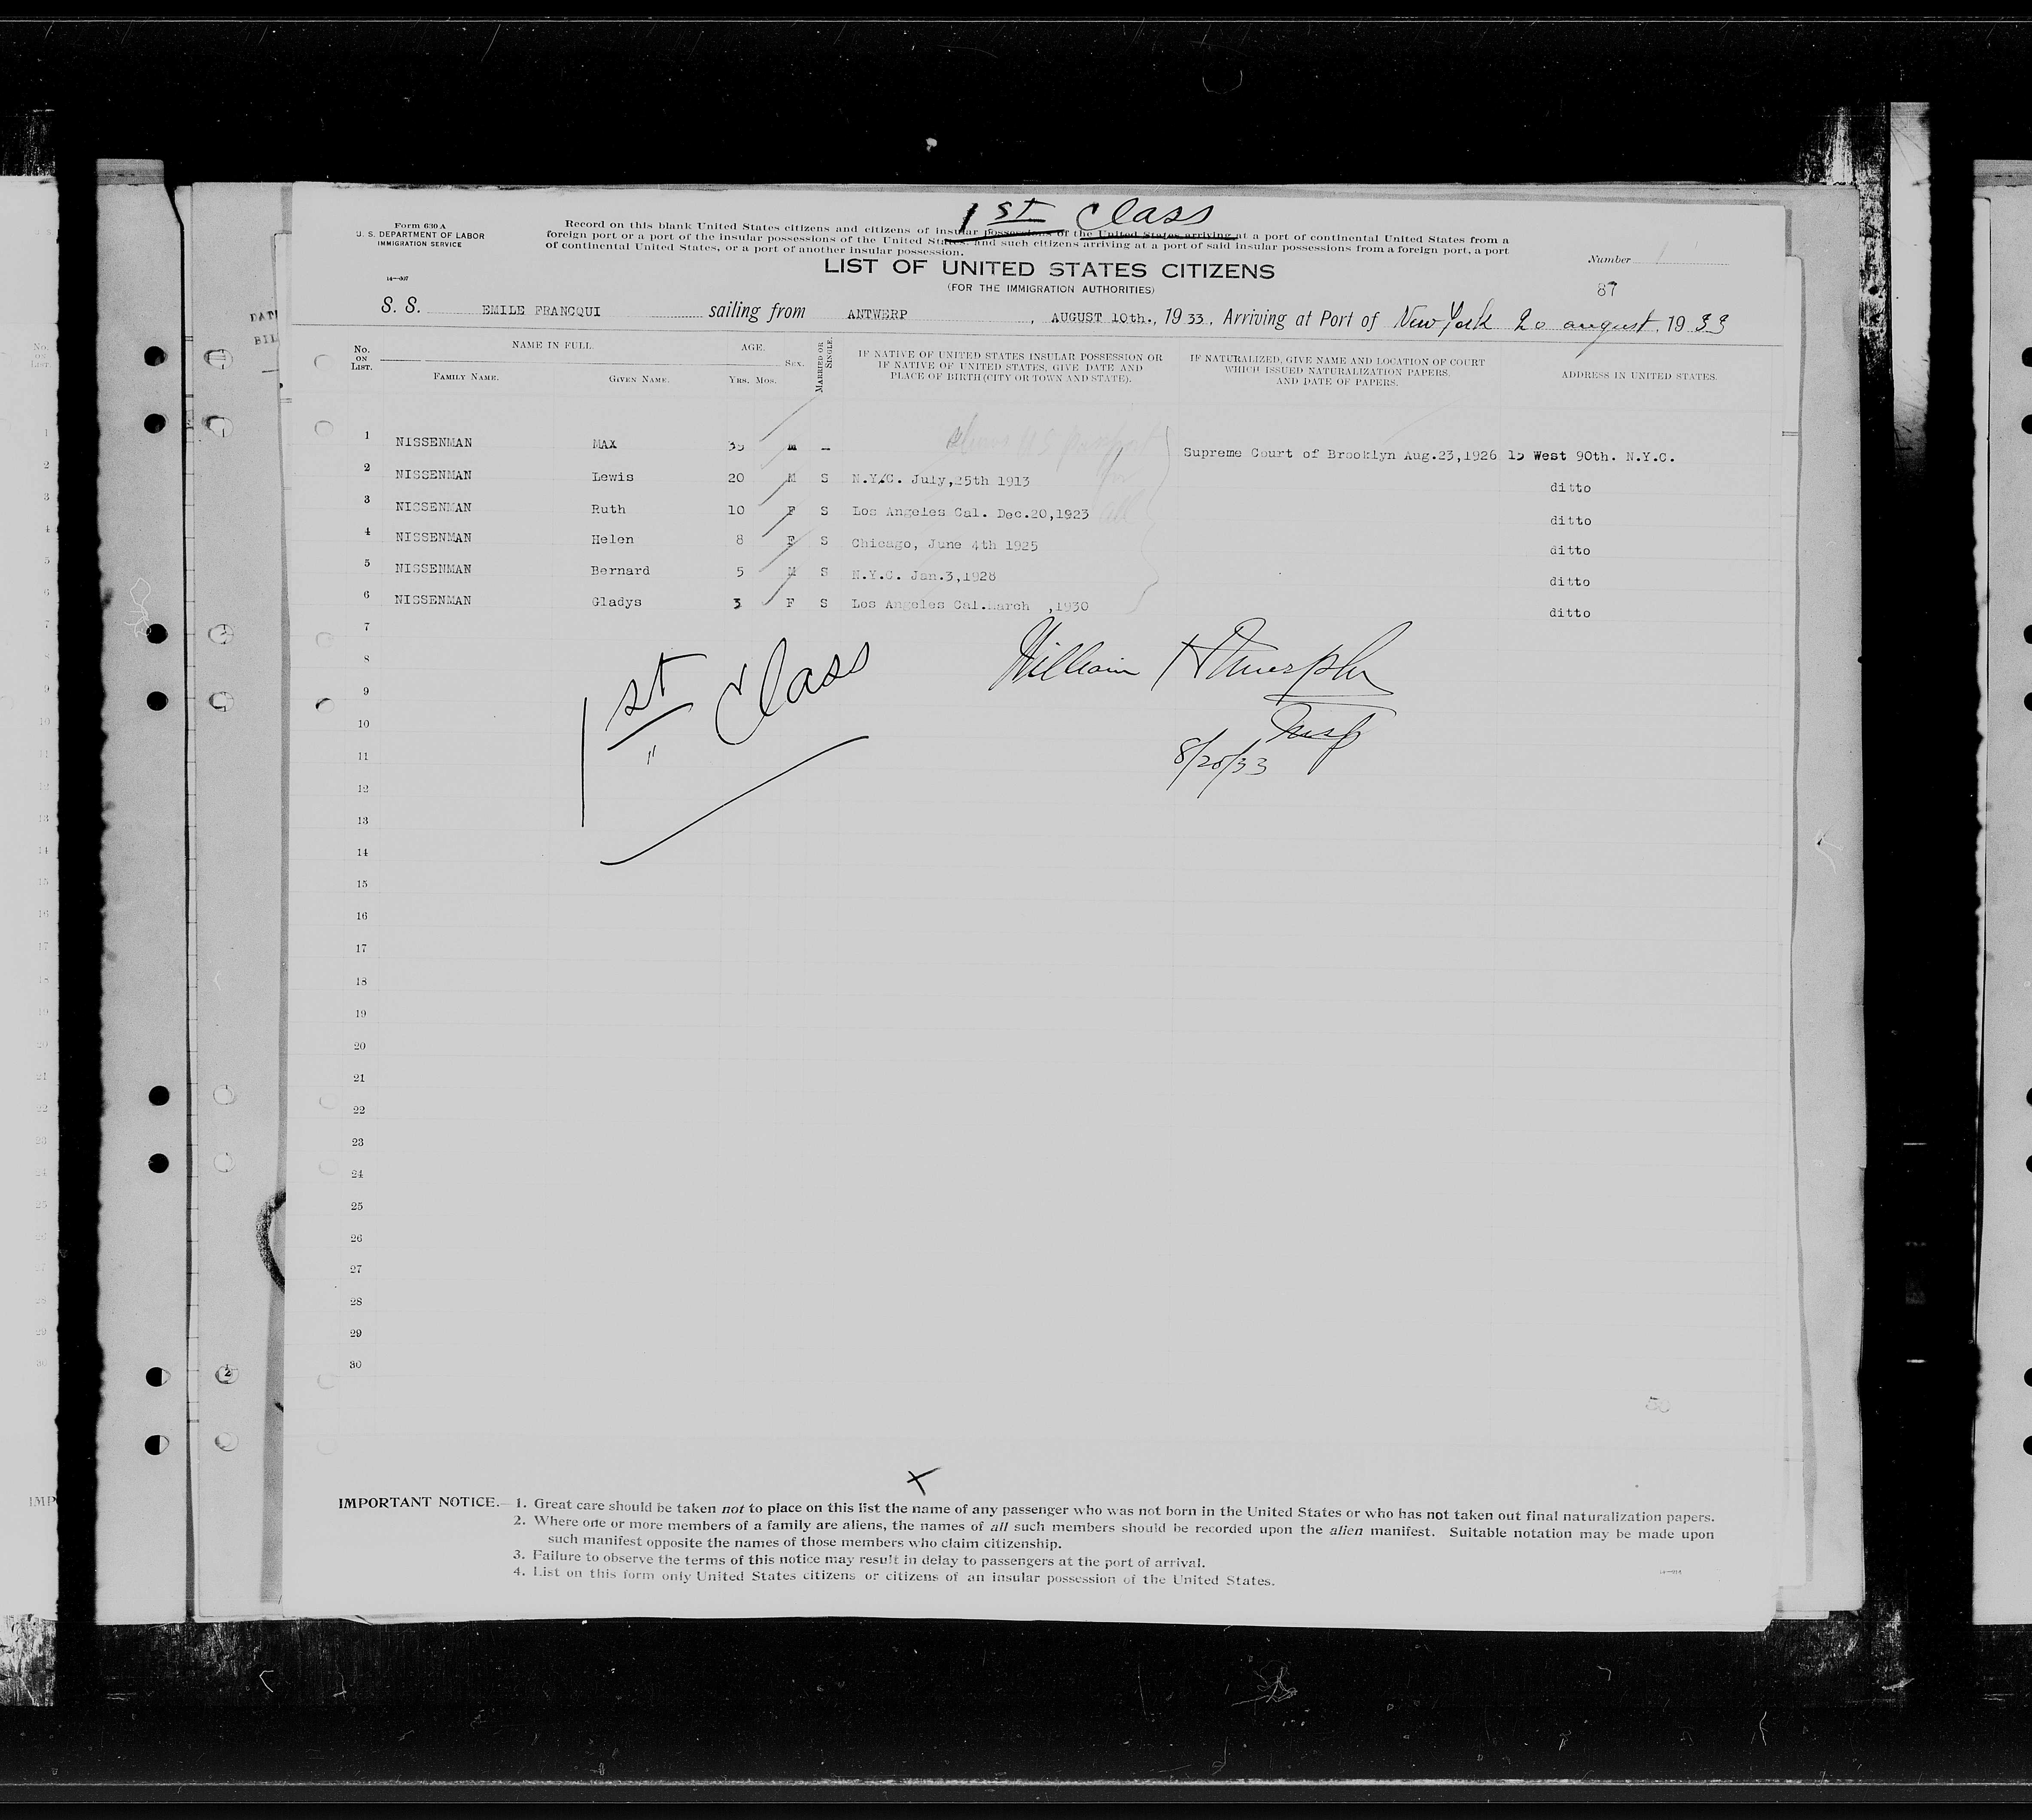 1st Class
Form 630 A
U. S. DEPARTMENT OF LABOR
IMMIGRATION SERVICE
Record on this blank United States citizens and citizens of insular possessions of the United States arriving at a port of continental United States from a
foreign port or a port of the insular possessions of the United States, and such citizens arriving at a port of said insular possessions from a foreign port, a port
of continental United States, or a port of another insular possession.
Number
LIST OF UNITED STATES CITIZENS
(FOR THE IMMIGRATION AUTHORITIES)
87
S. S. EMILE FRANCQUI sailing from ANTWERP, AUGUST 10th., 1933, Arriving at Port of New York 20 august, 1933
No. ON LIST. NAME IN FULL. AGE. SEX. MARRIED OR SINGLE. IF NATIVE OF UNITED STATES INSULAR POSSESSION OR IF NATIVE OF UNITED STATES, GIVE DATE AND PLACE OF BIRTH (CITY OR TOWN AND STATE). IF NATURALIZED, GIVE NAME AND LOCATION OF COURT WHICH ISSUED NATURALIZATION PAPERS, AND DATE OF PAPERS. ADDRESS IN UNITED STATES.
FAMILY NAME. GIVEN NAME. YRS. MOS.
1 NISSENMAN MAX M – Supreme Court of Brooklyn Aug.23,1926 15 West 90th. N.Y.C.
2 NISSENMAN Lewis 20 M S N.Y.C. July,25th 1913 ditto
3 NISSENMAN Ruth 10 F S Los Angeles Cal. Dec.20,1923 ditto
4 NISSENMAN Helen 8 F S Chicago, June 4th 1925 ditto
5 NISSENMAN Bernard 5 M S N.Y.C. Jan.3,1928 ditto
6 NISSENMAN Gladys 3 F S Los Angeles Cal.March ,1930 ditto
7
8
9
10
11
12
13
14
15
16
17
18
19
20
21
22
23
24
25
26
27
28
29
30
1st Class
William H Murphy
Insp
8/20/33
50
X
IMPORTANT NOTICE.— 1. Great care should be taken not to place on this list the name of any passenger who was not born in the United States or who has not taken out final naturalization papers.
2. Where one or more members of a family are aliens, the names of all such members should be recorded upon the alien manifest. Suitable notation may be made upon
such manifest opposite the names of those members who claim citizenship.
3. Failure to observe the terms of this notice may result in delay to passengers at the port of arrival.
4. List on this form only United States citizens or citizens of an insular possession of the United States.